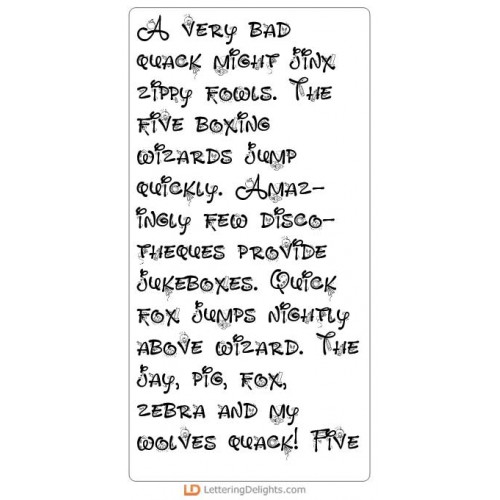 A very bad
quack might jinx
zippy fowls. The
five boxing
wizards jump
quickly. Amaz-
ingly few disco-
theques provide
jukeboxes. Quick
fox jumps nightly
above wizard. The
jay, pig, fox,
zebra and my
wolves quack! Five
LD LetteringDelights.com